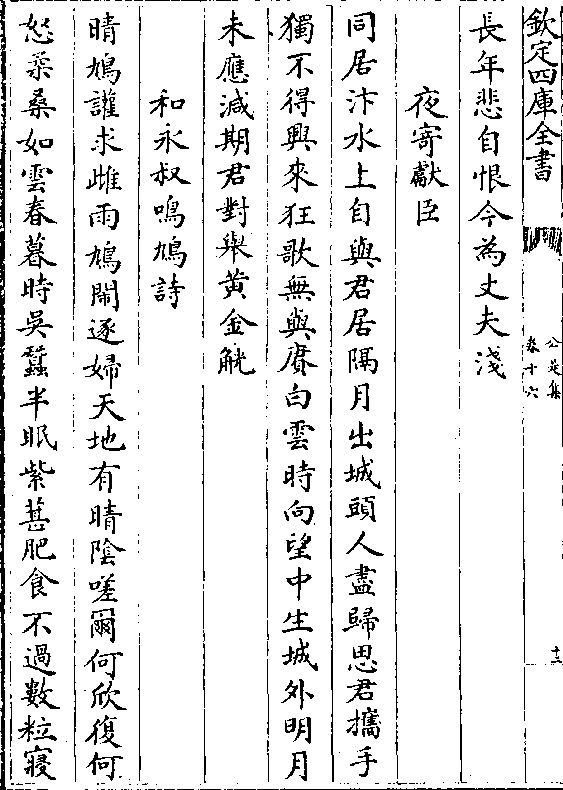 欽定四庫全書
公是集
卷十六
十二
長年悲自恨今為丈夫淺
夜寄獻臣
同居汴水上自與君居隔月出城頭人盡歸思君攜手
獨不得興來狂歌無與賡白雲時向望中生城外明月
未應減期君對舉黃金觥
和永叔鳴鳩詩
晴鳩讙求雌雨鳩鬧逐婦天地有晴陰嗟爾何欣復何
怒柔桑如雲春暮時吳蠶半眠紫葚肥食不過數粒寢